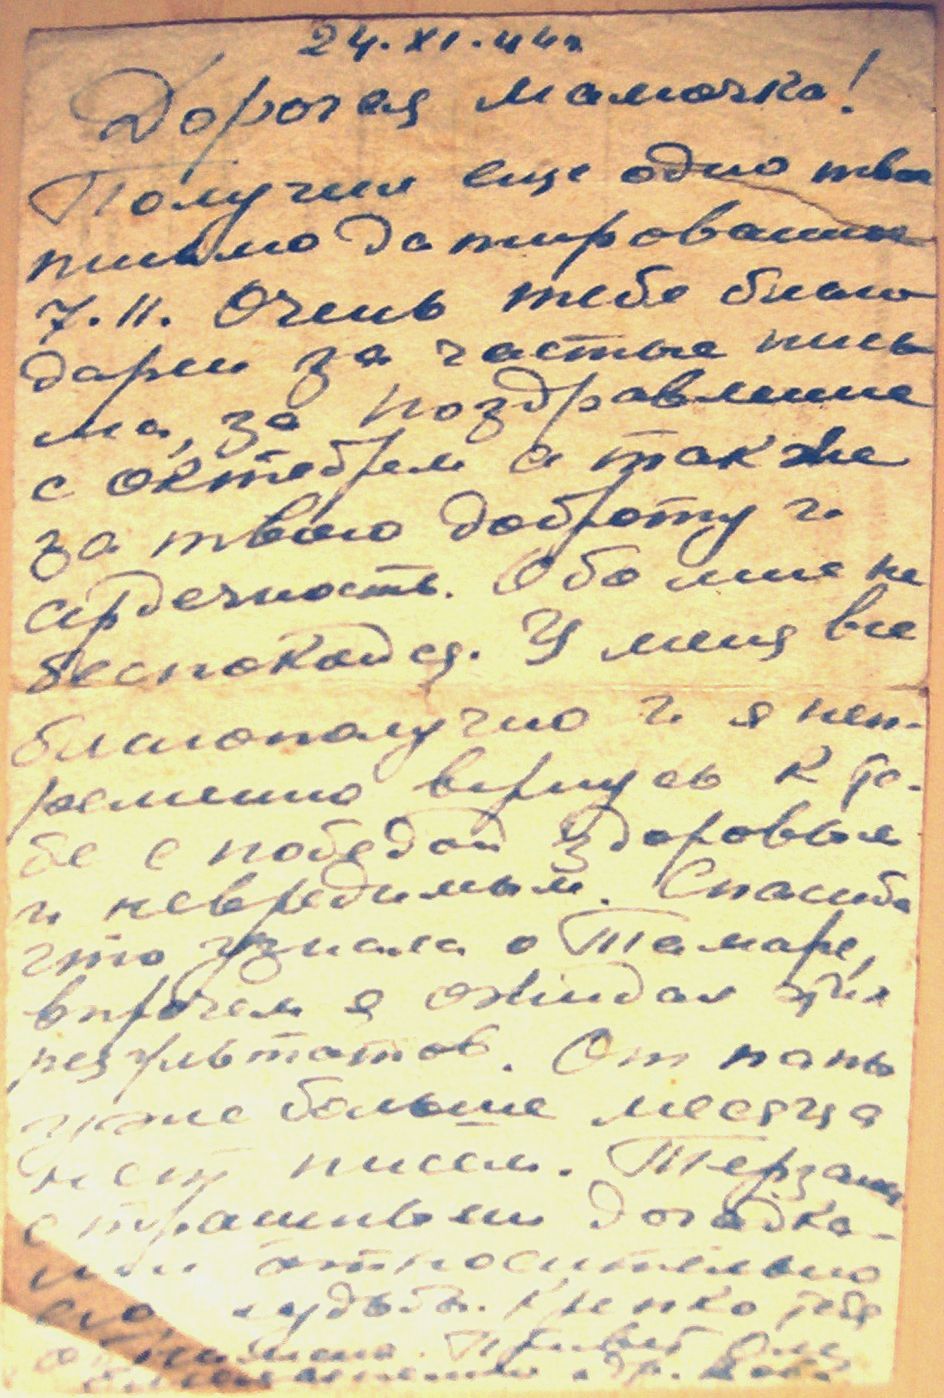 24.XI.44г
Дорогая мамочка!
Получил еще одно твое
письмо датированное
7.11. Очень тебе благо
дарен за частые пись
ма, за поздравление
с октябрем а также
за твою доброту и
сердечность. Обо мне не
беспокойся. У меня все
благополучно и я неп-
ременно вернусь к те-
бе с победой здоровым
и невредимым. Спасибо
что узнала о Тамаре,
впрочем я ожидал этих
результатов. От папы
уже больше месяца
нет писем. Терзаюсь
страшными догадка-
ми относительно
его судьбы. Крепко тебя
обнимаю. Привет Оле